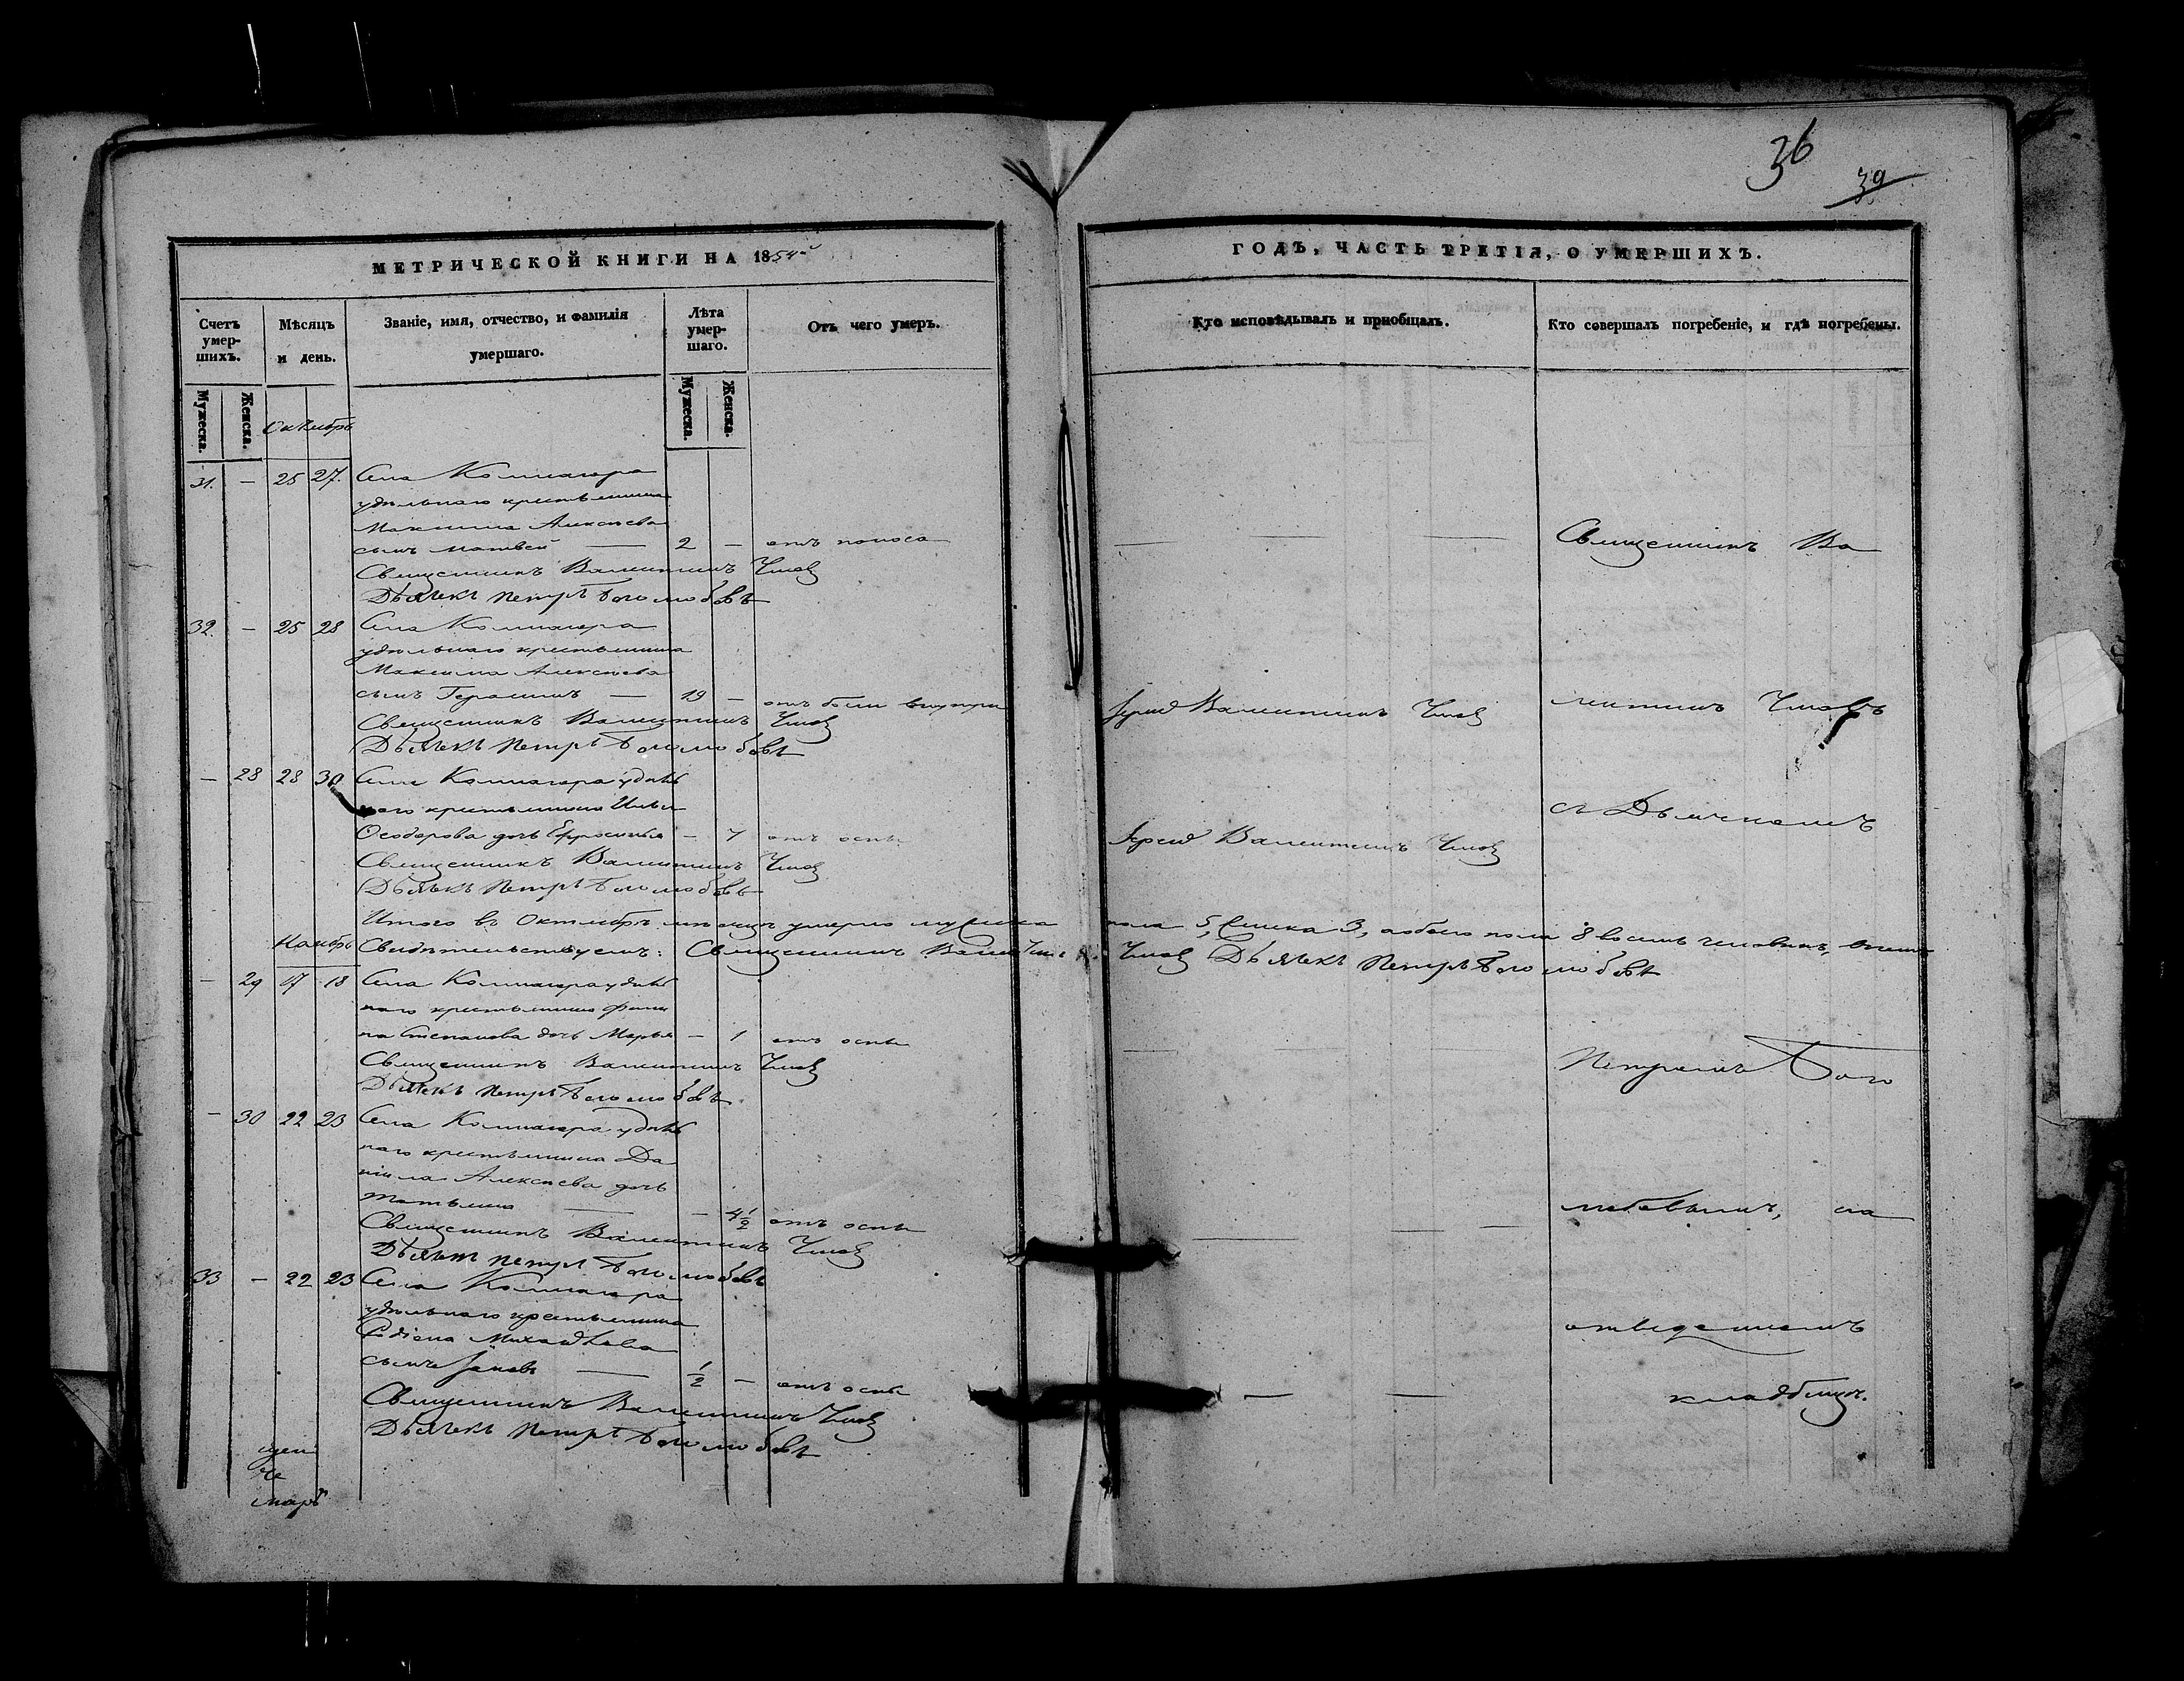 36
39
МЕТРИЧЕСКОЙ КНИГИ НА 1854й
ГОДЪ, ЧАСТЬ ТРЕТІЯ, О УМЕРШИХЪ.
Счетъ умер-шихъ.
Мѣсяцъ и день.
Званіе, имя, отчество, и фамилія умершаго.
Лѣта умер-шаго.
Отъ чего умеръ.
Кто исповѣдывалъ и пріобщалъ.
Кто совершалъ погребеніе, и гдѣ погребены.
Мужеска.
Женска.
Октябрь
Мужеска.
Женска.
31. — 25 27. Села
удѣльнаго крестьянина
Максима Алексѣева
сынъ Матвей — 2 — отъ поноса
Священникъ Ва
Священникъ Валентинъ
Дьячекъ Петръ Боголюбовъ
32. — 25 28 Села
удѣльнаго крестьянина
Максима Алексѣева
сынъ Герасимъ — 19 — отъ боли внутри
Іерей Валентинъ
лентинъ
Священникъ Валентинъ
Дьячекъ Петръ Боголюбовъ
— 28 28 30 Села удѣль
наго крестьянина Ильи
Ѳеодорова дочь Ефросинья — 7 отъ оспы
Іерей Валентинъ
съ Дьячкомъ
Священникъ Валентинъ
Дьячекъ Петръ Боголюбовъ
Итого въ Октябрѣ мѣсяцѣ умерло мужеска пола 5, женска 3, обоего пола 8 восемь человѣкъ, въ чемъ
Ноябрь
Свидѣтельствуемъ: Священникъ Дьячекъ Петръ Боголюбовъ
— 29 17 18 Села удѣль
наго крестьянина Филип
па Степанова дочь Марья — 1 отъ оспы
Петромъ Бого
Священникъ Валентинъ
Дьячекъ Петръ Боголюбовъ
— 30 22 23 Села удѣль
наго крестьянина Да
ніила Алексѣева дочь
Татьяна — — 4½ отъ оспы
любовымъ, на
Священникъ Валентинъ
Дьячекъ Петръ Боголюбовъ
33 — 22 23 Села
удѣльнаго крестьянина
Родіона Михайлова
отведенномъ
сынъ Іаковъ — ½ — отъ оспы
кладбищѣ.
Священникъ Валентинъ
Дьячекъ Петръ Боголюбовъ